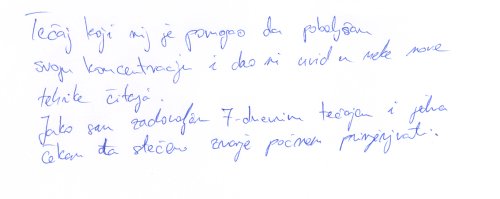 Tečaj koji mi je pomogao da poboljšam
svoju koncentraciju i dao mi uvid u neke nove
tehnike čitanja.
Jako sam zadovoljan 7-dnevnim tečajem i jedva
čekam da stečeno znanje počnem primjenjivati.